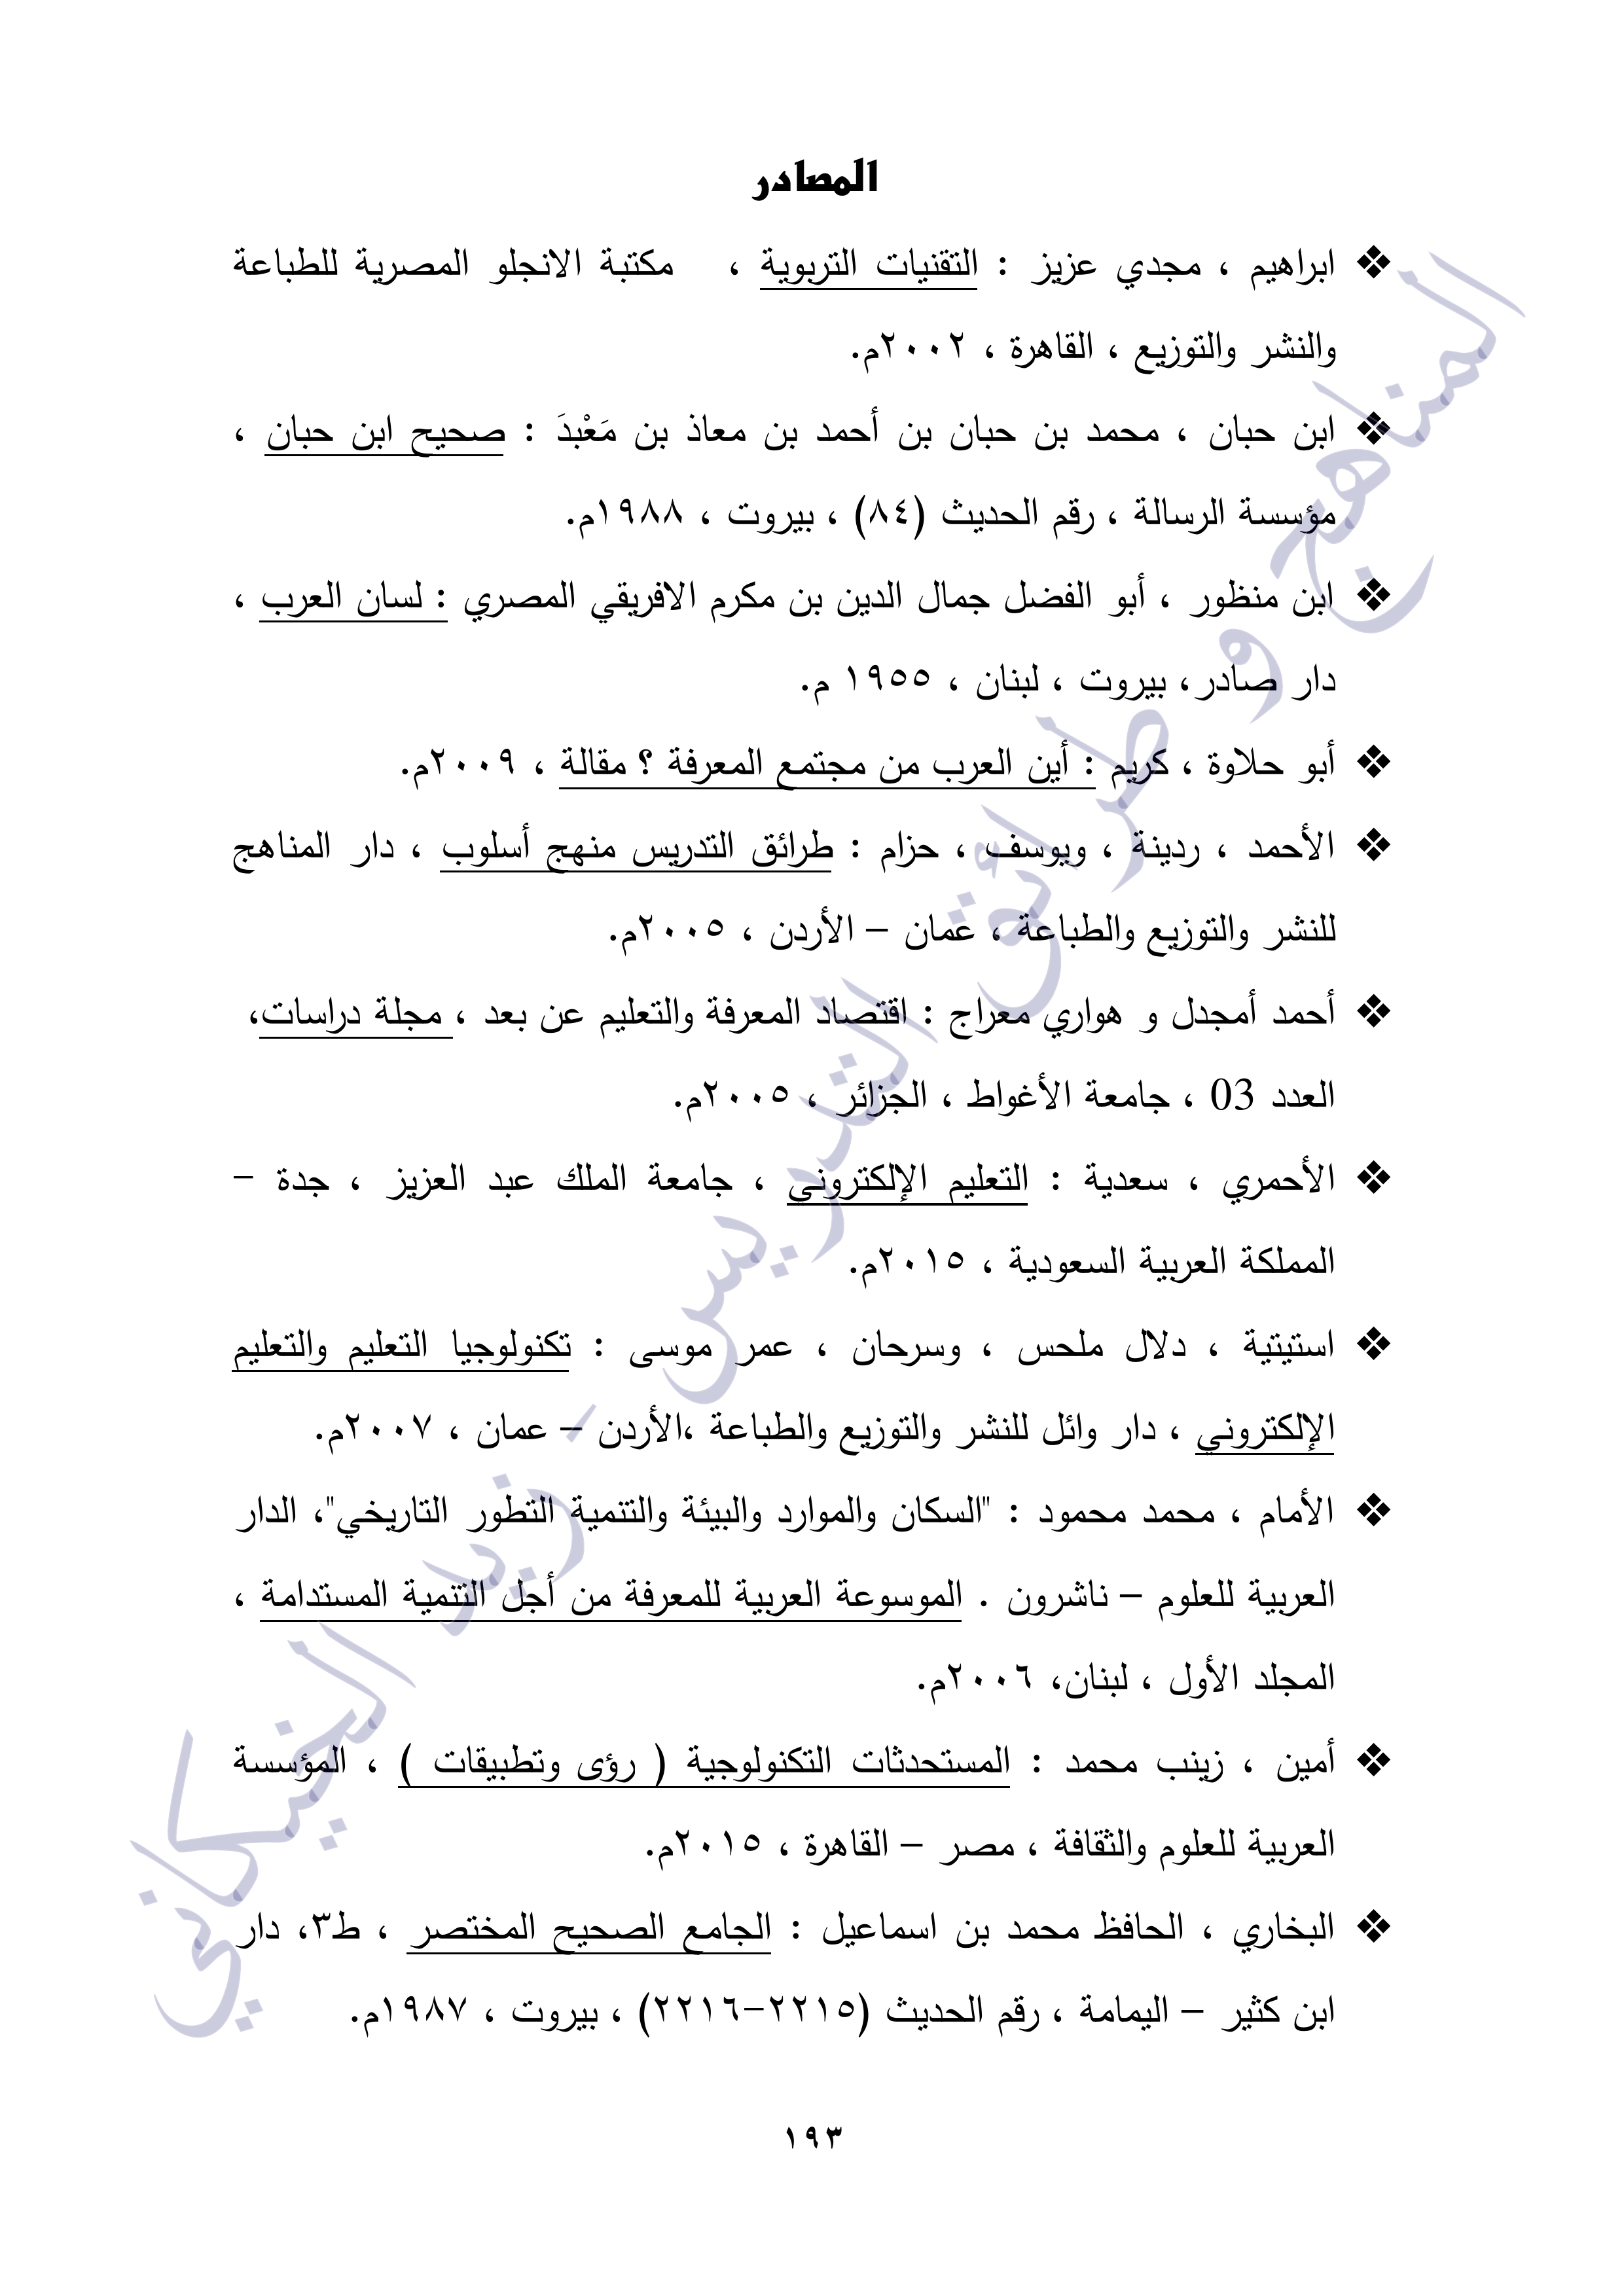 المصادر
❖ ابراهيم ، مجدي عزيز : التقنيات التربوية ، مكتبة الانجلو المصرية للطباعة
والنشر والتوزيع ، القاهرة ، ٢٠٠٢م.
❖ ابن حبان ، محمد بن حبان بن أحمد بن معاذ بن مَعْبدَ : صحيح ابن حبان ،
مؤسسة الرسالة ، رقم الحديث (٨٤) ، بيروت ، ١٩٨٨م.
❖ ابن منظور ، أبو الفضل جمال الدين بن مكرم الافريقي المصري : لسان العرب ،
دار صادر، بيروت ، لبنان ، ١٩٥٥ م.
❖ أبو حلاوة ، كريم : أين العرب من مجتمع المعرفة ؟ مقالة ، ٢٠٠٩م.
❖ الأحمد ، ردينة ، ويوسف ، حزام : طرائق التدريس منهج أسلوب ، دار المناهج
للنشر والتوزيع والطباعة ، عمان – الأردن ، ٢٠٠٥م.
❖ أحمد أمجدل و هواري معراج : اقتصاد المعرفة والتعليم عن بعد ، مجلة دراسات،
العدد 03 ، جامعة الأغواط ، الجزائر ، ٢٠٠٥م.
❖ الأحمري ، سعدية : التعليم الإلكتروني ، جامعة الملك عبد العزيز ، جدة –
المملكة العربية السعودية ، ٢٠١٥م.
❖ استيتية ، دلال ملحس ، وسرحان ، عمر موسى : تكنولوجيا التعليم والتعليم
الإلكتروني ، دار وائل للنشر والتوزيع والطباعة ،الأردن – عمان ، ٢٠٠٧م.
❖ الأمام ، محمد محمود : "السكان والموارد والبيئة والتنمية التطور التاريخي"، الدار
العربية للعلوم – ناشرون . الموسوعة العربية للمعرفة من أجل التنمية المستدامة ،
المجلد الأول ، لبنان، ٢٠٠٦م.
❖ أمين ، زينب محمد : المستحدثات التكنولوجية ( رؤى وتطبيقات ) ، المؤسسة
العربية للعلوم والثقافة ، مصر – القاهرة ، ٢٠١٥م.
❖ البخاري ، الحافظ محمد بن اسماعيل : الجامع الصحيح المختصر ، ط٣، دار
ابن كثير – اليمامة ، رقم الحديث (٢٢١٥-٢٢١٦) ، بيروت ، ١٩٨٧م.
١٩٣
المناهج و طرائق التدريس - زيد الخيكاني